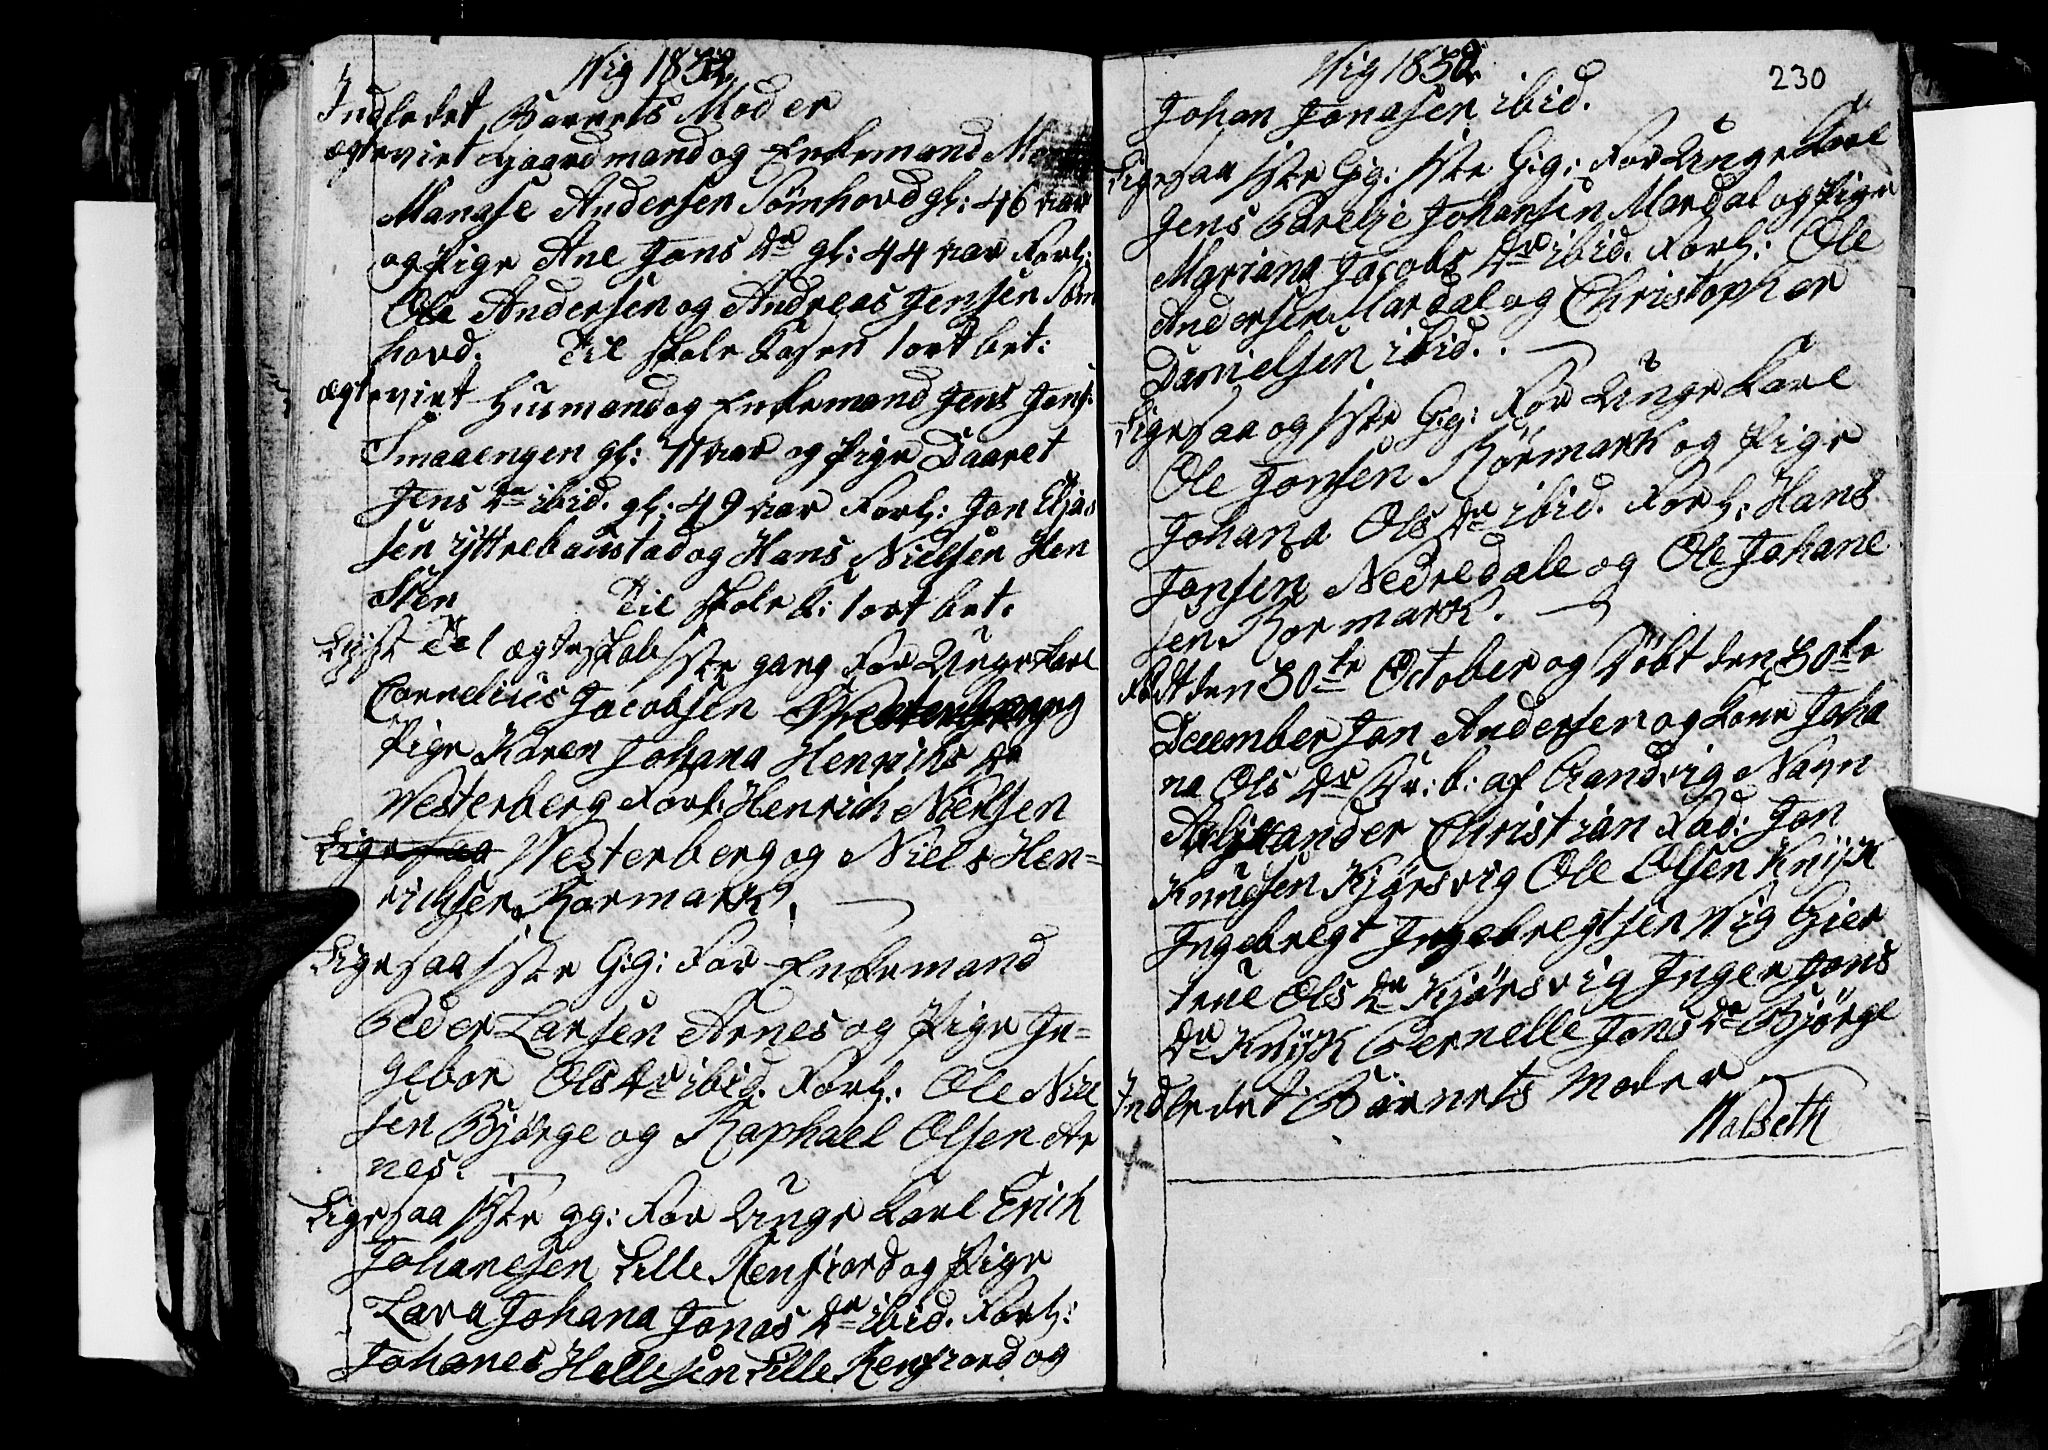 Wig 1832
Indledet Barnets Moder
ægteviet Gaardmand og Enkemand
Manase Andersen Sømhovd gl: 46 aar
og Pige Ane Jons Dr gl: 44 aar Forl:
Ole Andersen og Andreas Jensen Søm
hovd. Til skole Kasen 1 ort bet:
ægteviet Husmand og Enkemand Jens Jens:
Smaaengen gl: 71 aar og Pige Daaret
Jens Dr ibid. gl: 49 aar Forl: Jon Elias
sen yttrebaustad og Hans Nielsen Hen
sten Til skole K: 1 ort bet.
Lyst Til ægteskab 1ste gang For Unge Karl
Cornelius Jacobsen og
Pige Karen Johana Henrichs Dr
Westerberg Forl: Henrich Nielsen
Ligesaa Westerberg og Niels Hen-
richsen Kormark.
Ligesaa 1ste Gg: For Enkemand
Peder Larsen Arnes og Pige In-
gebor Ols Dr ibid. Forl: Ole Niel
sen Bjørge og Raphael Olsen Ar
nes.
Ligesaa 1ste gg: For Unge Karl Erich
Johanesen Lille Kenfiord og Pige
Lava Johana Jonas Dr ibid. Forl:
Johanes Hellesen Lille Kenfiord og
Wig 1832
230
Johan Jonasen ibid.
Ligesaa 1ste Gig: 1ste Gig: For Unge Karl
Jens Parelje Johansen Mardal og Pige
Mariana Jacobs Dr ibid. Forl: Ole
Andersen Mardal og Christopher
Danielsen ibid.
Ligesaa og 1ste Gig: For Unge Karl
Ole Jonsen Kormark og Pige
Johana Ols Dr ibid. Forl: Hans
Jonsen Nedredale og Ole Johane
sen Kormark.
Født den 30te October og Døbt den 30te
December Jon Andersen og Kone Joha
na Ols Dr Dr: b: af Aandvig Navn
Alixander Christian Fad: Jon
Knudsen Kjørsvig Ole Olsen Knysk
Ingebregt Ingebregtsen Wig Gier
true Ols Dr Kjørsvig Inger Jons
Dr Knysk Pernelle Jons Dr Bjørge
Indledet Barnets Moder
Walseth